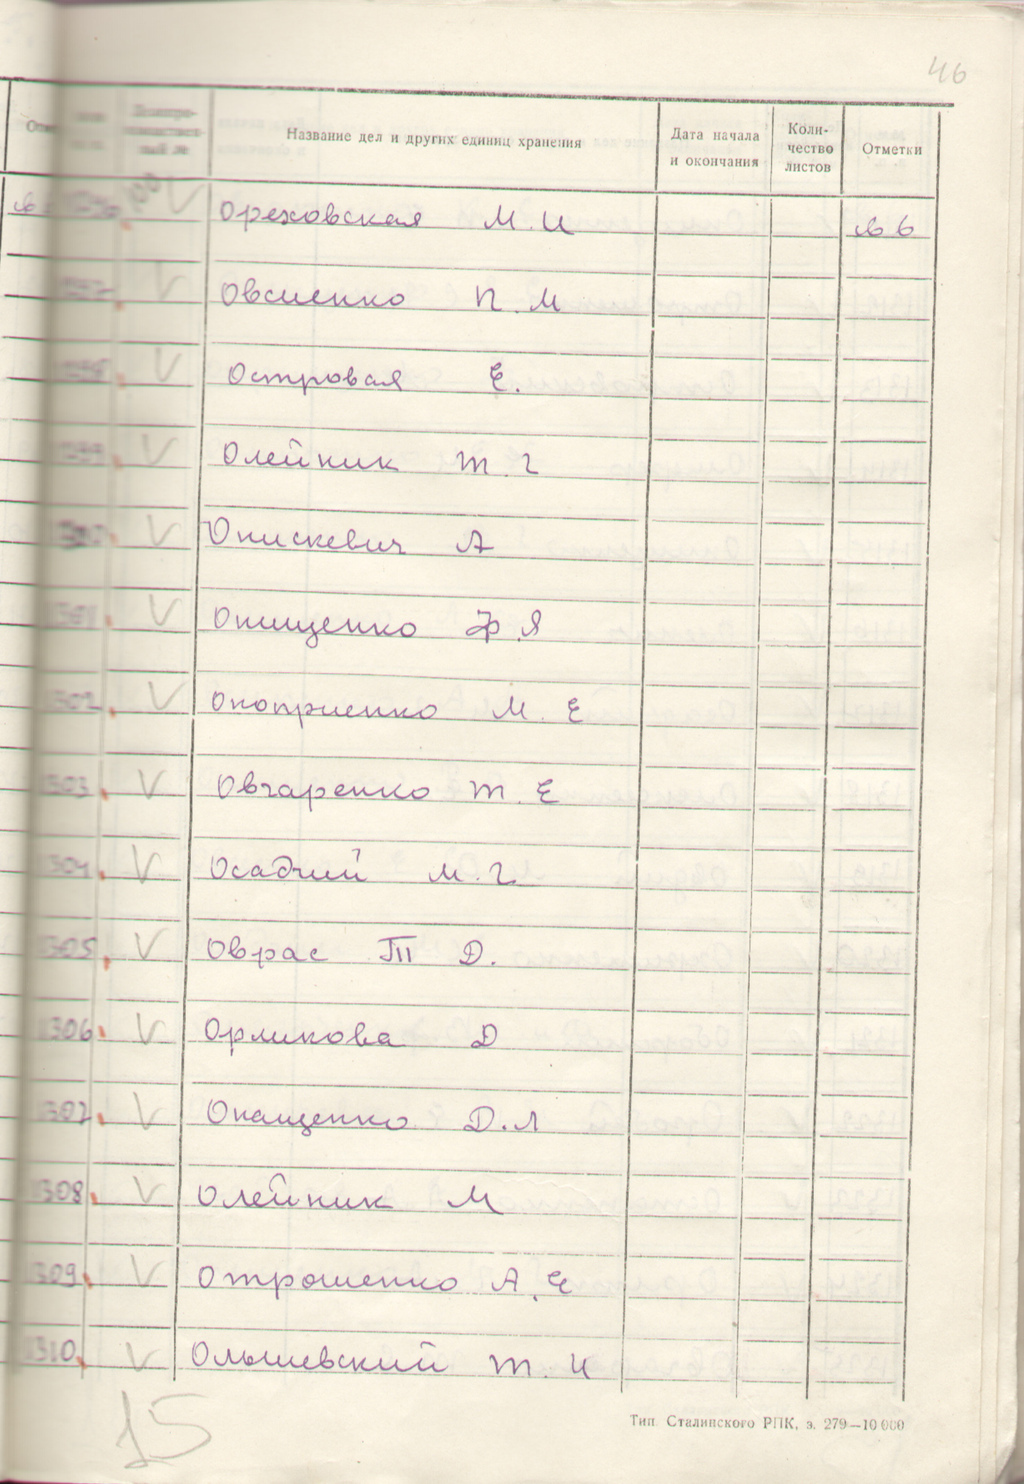 46
Название дел и других единиц хранения
Дата начала и окончания
Коли-чество листов
Отметки
Ореховская М. И
Овсиенко П. М
Островая Е.
1299 Олейник Т. Г
Онискевич А
1301 Онищенко Ф. Я
1302 Оноприенко М. Е
1303 Овчаренко Т. Е
1304 Осадчий М. Г
1305 Оврас Т Д.
1306 Орликова Д
1307 Онащенко Д. Л
1308 Олейник М
1309 Отрошенко А. Е
1310 Ольшевский Т. И
15
Тип. Сталинского РПК, з. 279—10 000